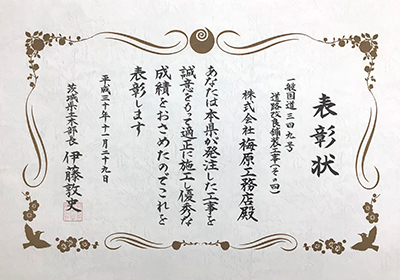 表彰状
一般国道三四九号
道路改良舗装工事（その四）
株式会社梅原工務店殿
あなたは本県が発注した工事を
誠意をもって適正に施工し優秀な
成績をおさめたのでこれを
表彰します
平成三十年十一月二十九日
茨城県土木部長 伊藤敦史